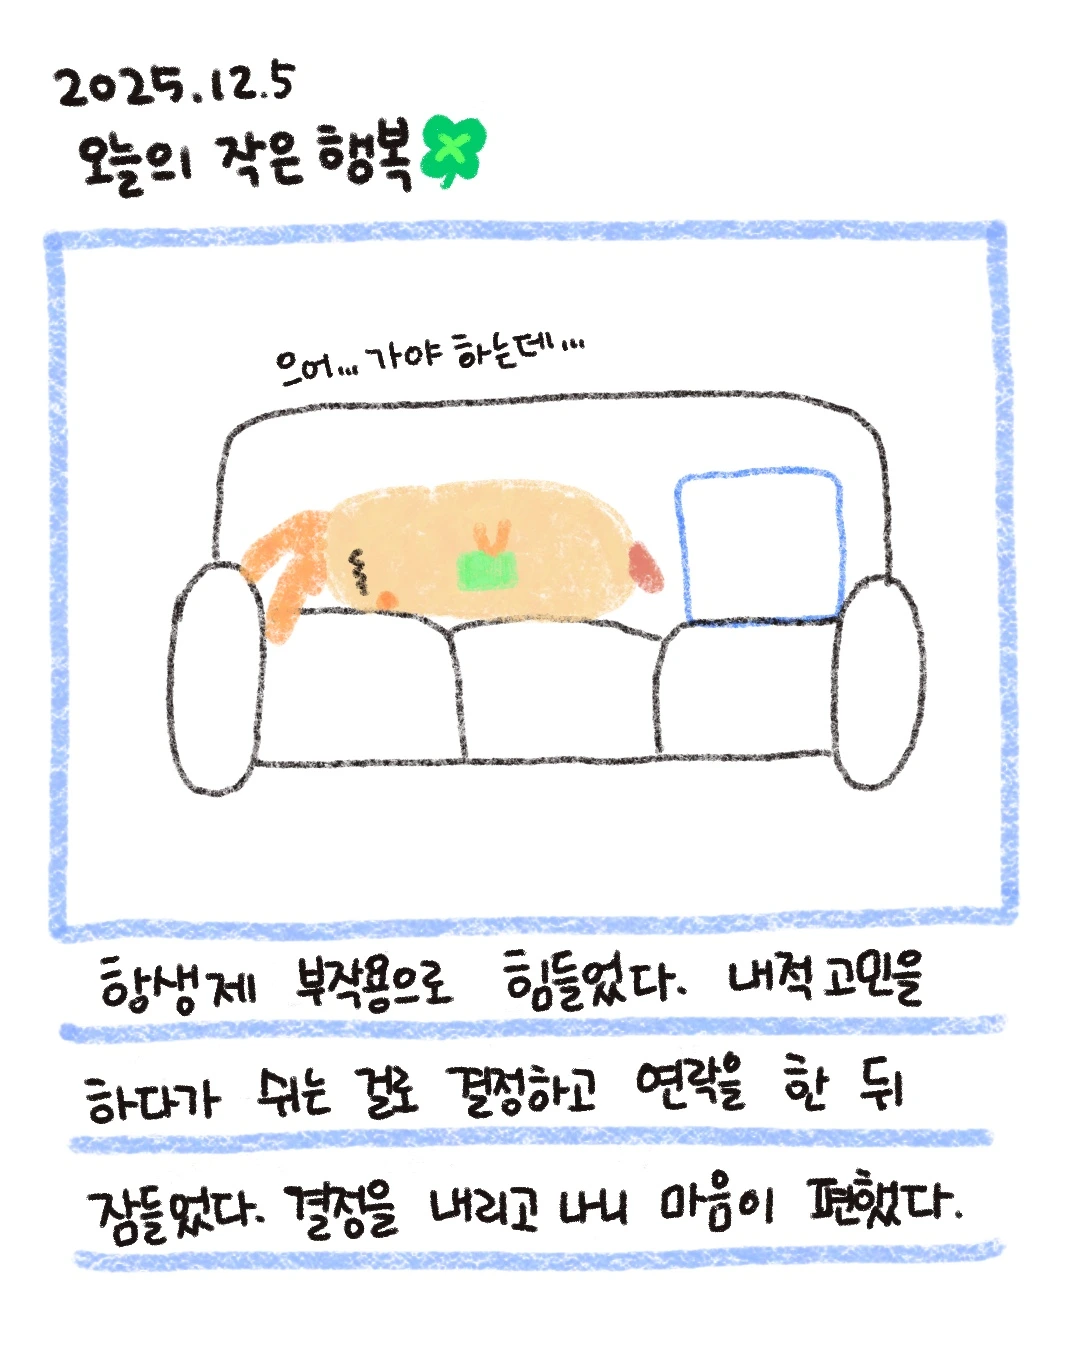 2025.12.5
오늘의 작은 행복
으어... 가야 하는데...
항생제 부작용으로 힘들었다. 내적 고민을
하다가 쉬는 걸로 결정하고 연락을 한 뒤
잠들었다. 결정을 내리고 나니 마음이 편했다.